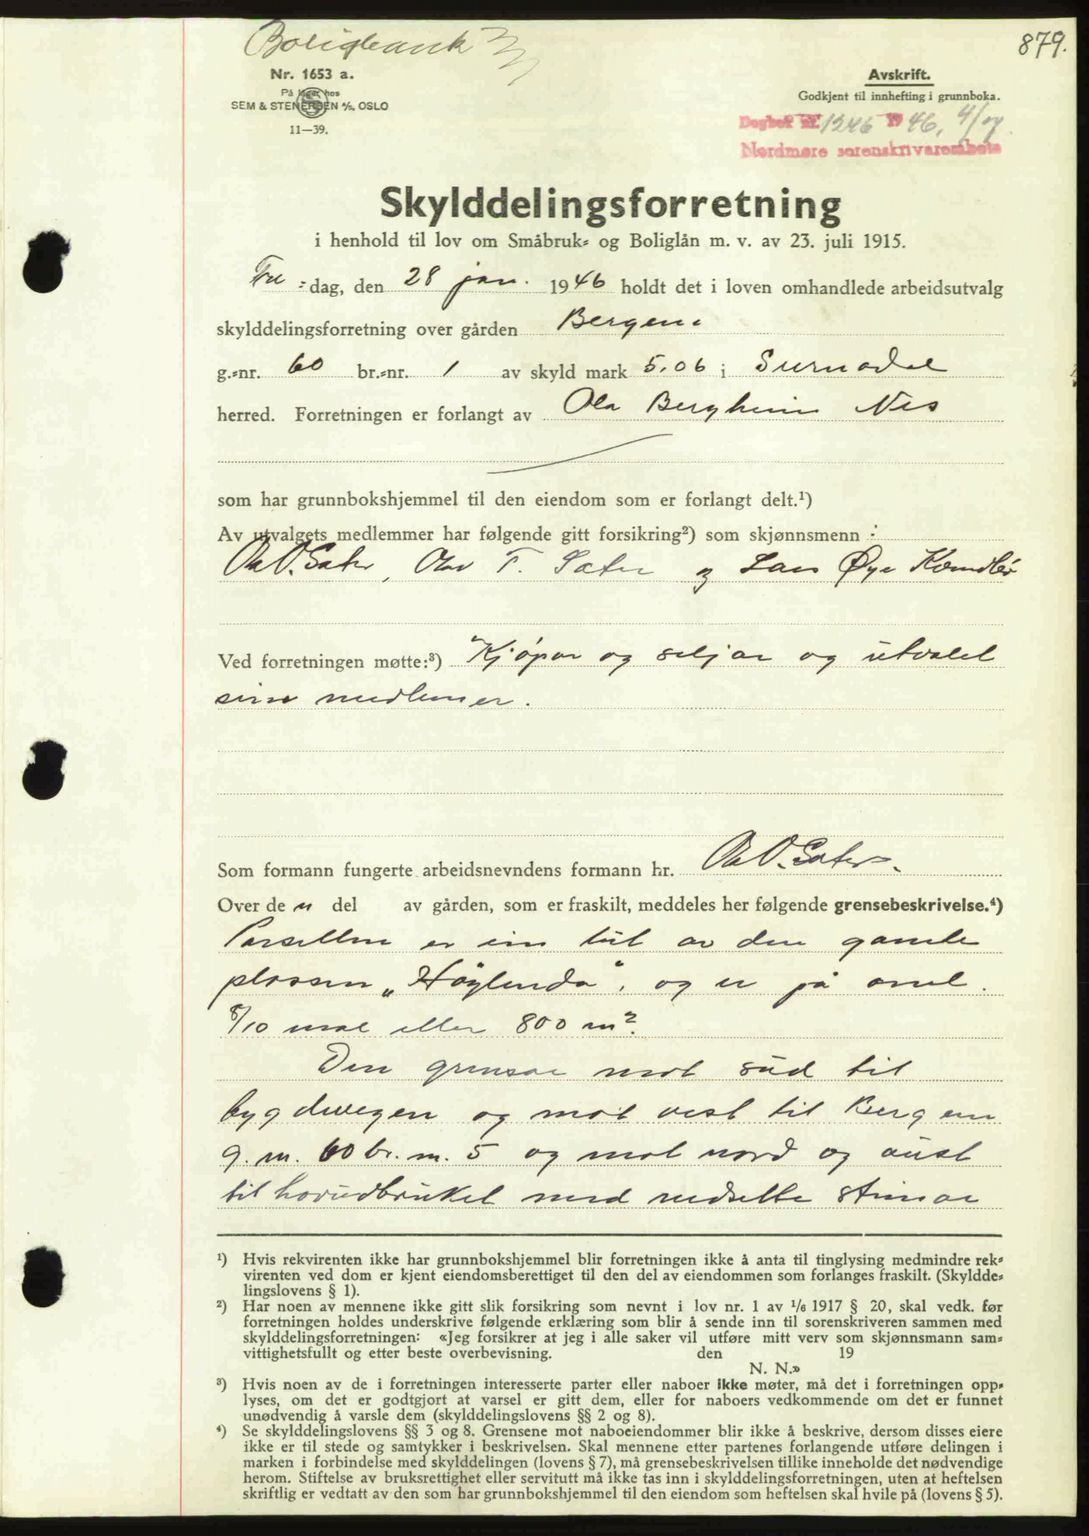 Boligbank
879.
Nr. 1653 a.
På lager hos
SEM & STENERSEN A/S, OSLO
11—39.
Avskrift.
Godkjent til innhefting i grunnboka.
Dagbok nr. 1246 1946, 4/
Nordmøre sorenskrivarembete
Skylddelingsforretning
i henhold til lov om Småbruk- og Boliglån m. v. av 23. juli 1915.
dag, den 28 jan. 1946 holdt det i loven omhandlede arbeidsutvalg
skylddelingsforretning over gården Bergem
g.-nr. 60 br.-nr. 1 av skyld mark 5.06 i Surnadal
herred. Forretningen er forlangt av Ola Bergheim Nes
som har grunnbokshjemmel til den eiendom som er forlangt delt.¹)
Av utvalgets medlemmer har følgende gitt forsikring²) som skjønnsmenn :
O. Sæter, Olav T. Sæter og Lars Øye
Ved forretningen møtte:³) Kjøpar og seljar og utvalet
sine medlemer.
Som formann fungerte arbeidsnevndens formann hr. O. Sæter.
Over de n del av gården, som er fraskilt, meddeles her følgende grensebeskrivelse.⁴)
Parsellen er ein lut av den gamle
plassen „Høglenda", og er på oml.
8/10 mål eller 800 m².
Den grensar mot sud til
bygdevegen og mot vest til Bergem
g. nr. 60 br. nr. 5 og mot nord og aust
til hovudbruket med nedsette steinar
¹) Hvis rekvirenten ikke har grunnbokshjemmel blir forretningen ikke å anta til tinglysing medmindre rek-
virenten ved dom er kjent eiendomsberettiget til den del av eiendommen som forlanges fraskilt. (Skyldde-
lingslovens § 1).
²) Har noen av mennene ikke gitt slik forsikring som nevnt i lov nr. 1 av 1/6 1917 § 20, skal vedk. før
forretningen holdes underskrive følgende erklæring som blir å sende inn til sorenskriveren sammen med
skylddelingsforretningen: «Jeg forsikrer at jeg i alle saker vil utføre mitt verv som skjønnsmann sam-
vittighetsfullt og etter beste overbevisning. den 19
N. N.»
³) Hvis noen av de i forretningen interesserte parter eller naboer ikke møter, må det i forretningen opp-
lyses, om det er godtgjort at varsel er gitt dem, eller for naboers vedkommende om det er funnet
unødvendig å varsle dem (skylddelingslovens §§ 2 og 8).
⁴) Se skylddelingslovens §§ 3 og 8. Grensene mot naboeiendommer blir ikke å beskrive, dersom disses eiere
ikke er til stede og samtykker i beskrivelsen. Skal mennene etter partenes forlangende utføre delingen i
marken i forbindelse med skylddelingen (lovens § 7), må grensebeskrivelsen tillike inneholde det nødvendige
herom. Stiftelse av bruksrettighet eller servitutt må ikke tas inn i skylddelingsforretningen, uten at heftelsen
skriftlig er vedtatt av den som har grunnbokshjemmel til den eiendom som heftelsen skal hvile på (lovens § 5).